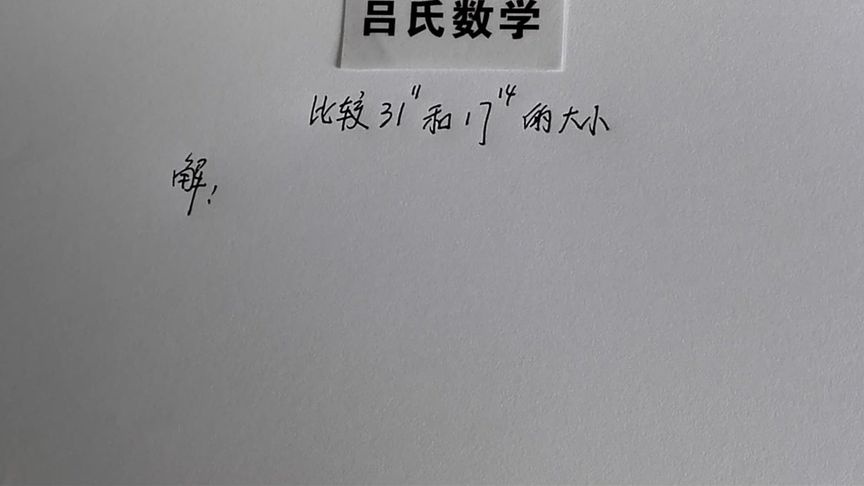 吕氏数学
比较31¹¹和17¹⁴的大小
解: